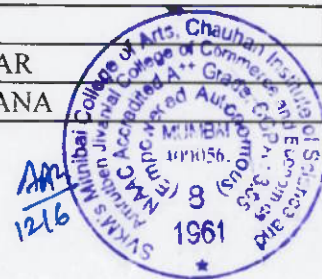 AR
ANA
SVKM's Mithibai College of Arts, Chauhan Institute of Science and
Amrutben Jivanlal College of Commerce and Economics
NAAC Accredited A++ Grade, CGPA: 3.65
(Empowered Autonomous)
MUMBAI
400056.
8
1961
12/6